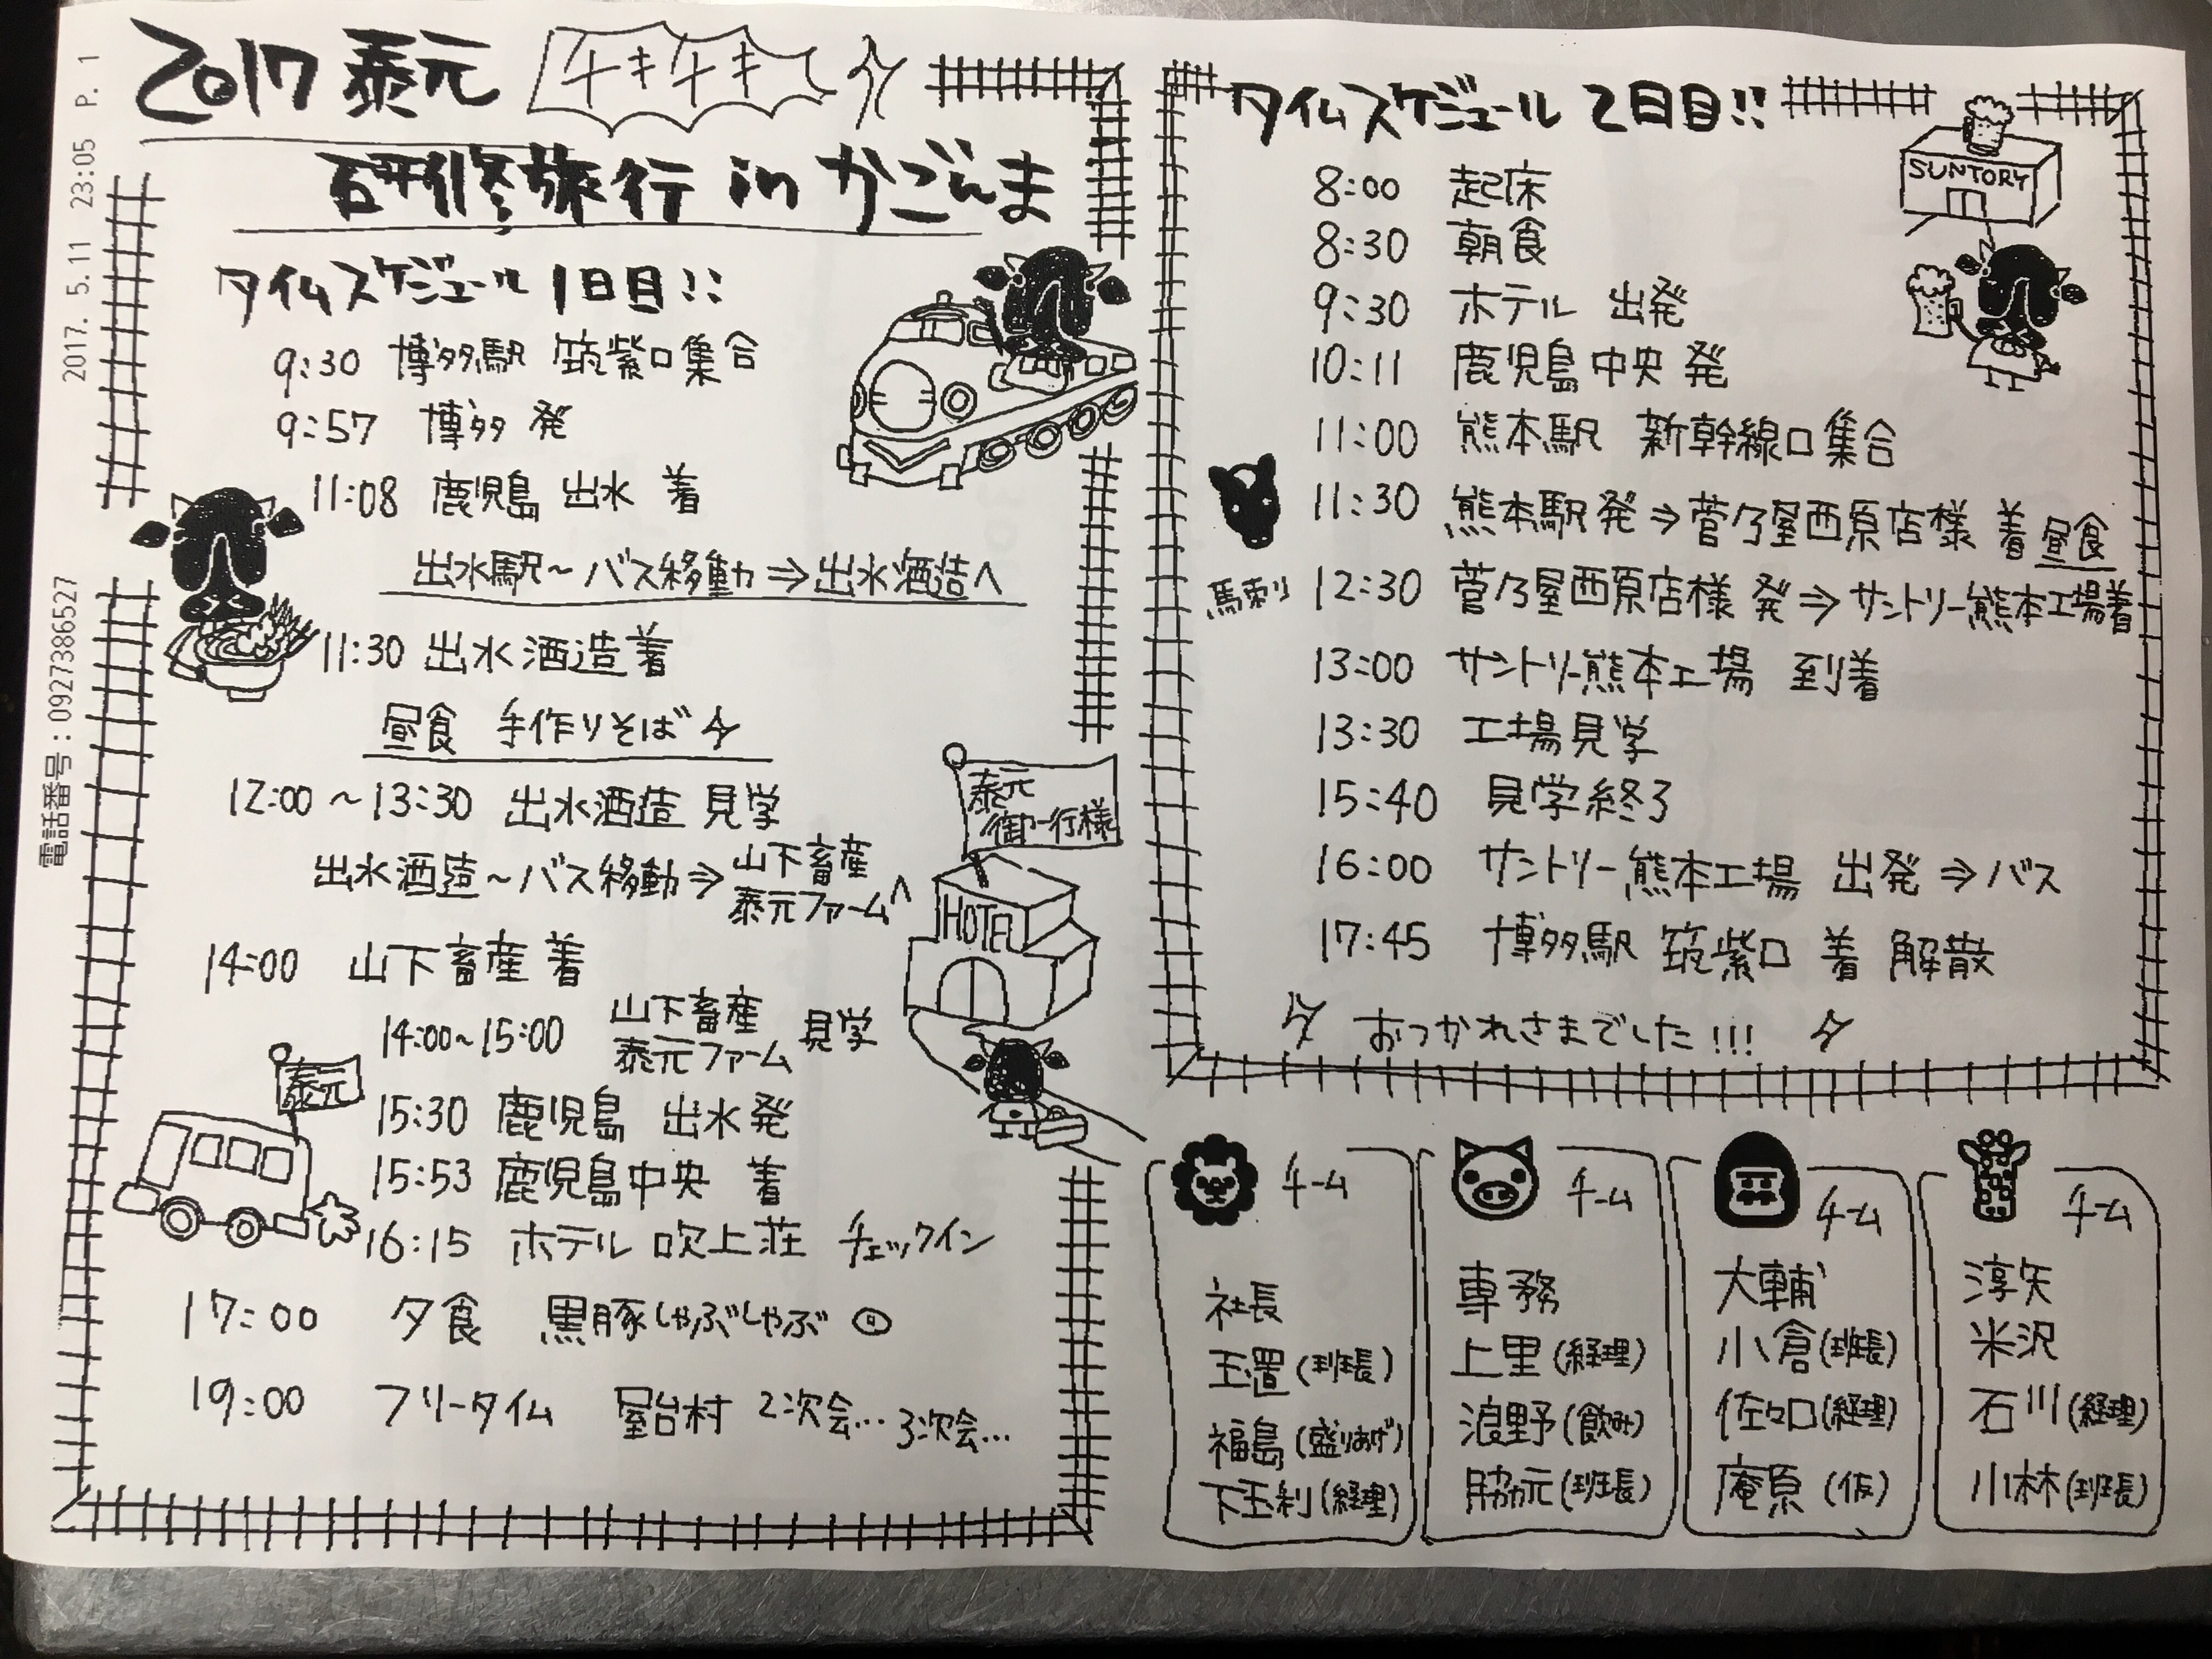 2017. 5.11 23:05 P. 1
電話番号：0927386527
2017 泰元 チキチキ
研修旅行 in かごんま
タイムスケジュール 1日目!!
9:30 博多駅 筑紫口集合
9:57 博多 発
11:08 鹿児島 出水 着
出水駅～バス移動⇒出水酒造へ
11:30 出水酒造 着
昼食 手作りそば
12:00～13:30 出水酒造 見学
出水酒造～バス移動⇒山下畜産
泰元ファームへ
14:00 山下畜産 着
14:00～15:00 山下畜産
泰元ファーム 見学
15:30 鹿児島 出水発
15:53 鹿児島中央 着
16:15 ホテル 吹上荘 チェックイン
17:00 夕食 黒豚しゃぶしゃぶ
19:00 フリータイム 屋台村 2次会… 3次会…
泰元
御一行様
HOTEL
泰元
タイムスケジュール 2日目!!
SUNTORY
8:00 起床
8:30 朝食
9:30 ホテル 出発
10:11 鹿児島中央 発
11:00 熊本駅 新幹線口集合
11:30 熊本駅 発⇒菅乃屋西原店様 着 昼食
馬刺り
12:30 菅乃屋西原店様 発⇒サントリー熊本工場着
13:00 サントリー熊本工場 到着
13:30 工場見学
15:40 見学終了
16:00 サントリー熊本工場 出発⇒バス
17:45 博多駅 筑紫口 着 解散
おつかれさまでした!!!
チーム
社長
玉置(班長)
福島(盛りあげ)
下玉利(経理)
チーム
専務
上里(経理)
浪野(飲み)
脇元(班長)
チーム
大輔
小倉(班長)
佐々口(経理)
庵原(仮)
チーム
淳矢
米沢
石川(経理)
小林(班長)